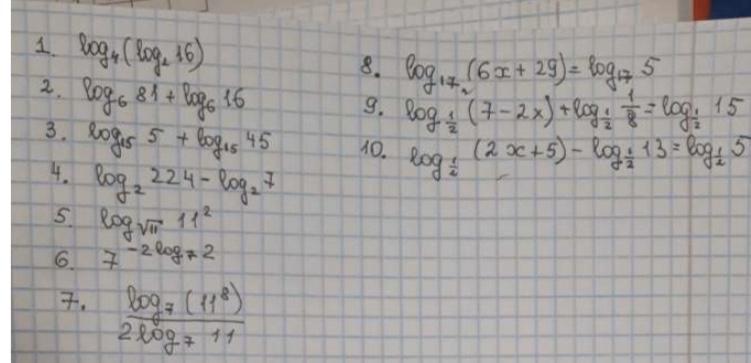 1. log₄(log₂ 16)
2. log₆ 81 + log₆ 16
3. log₁₅ 5 + log₁₅ 45
4. log₂ 224 - log₂ 7
5. log_√11 11²
6. 7^(-2log₇ 2)
7. log₇ (11⁸) / 2log₇ 11
8. log₁₇ (6x + 29) = log₁₇ 5
9. log_½ (7 - 2x) + log_½ 1/8 = log_½ 15
10. log_½ (2x + 5) - log_½ 13 = log_½ 5